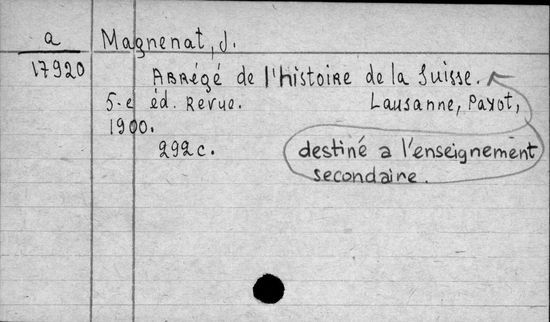 a
Magnenat, J.
17920
Abrégé de l'histoire de la Suisse.
5-e éd. Revue. Lausanne, Payot,
1900.
292 c.
destiné a l'enseignement
secondaire.